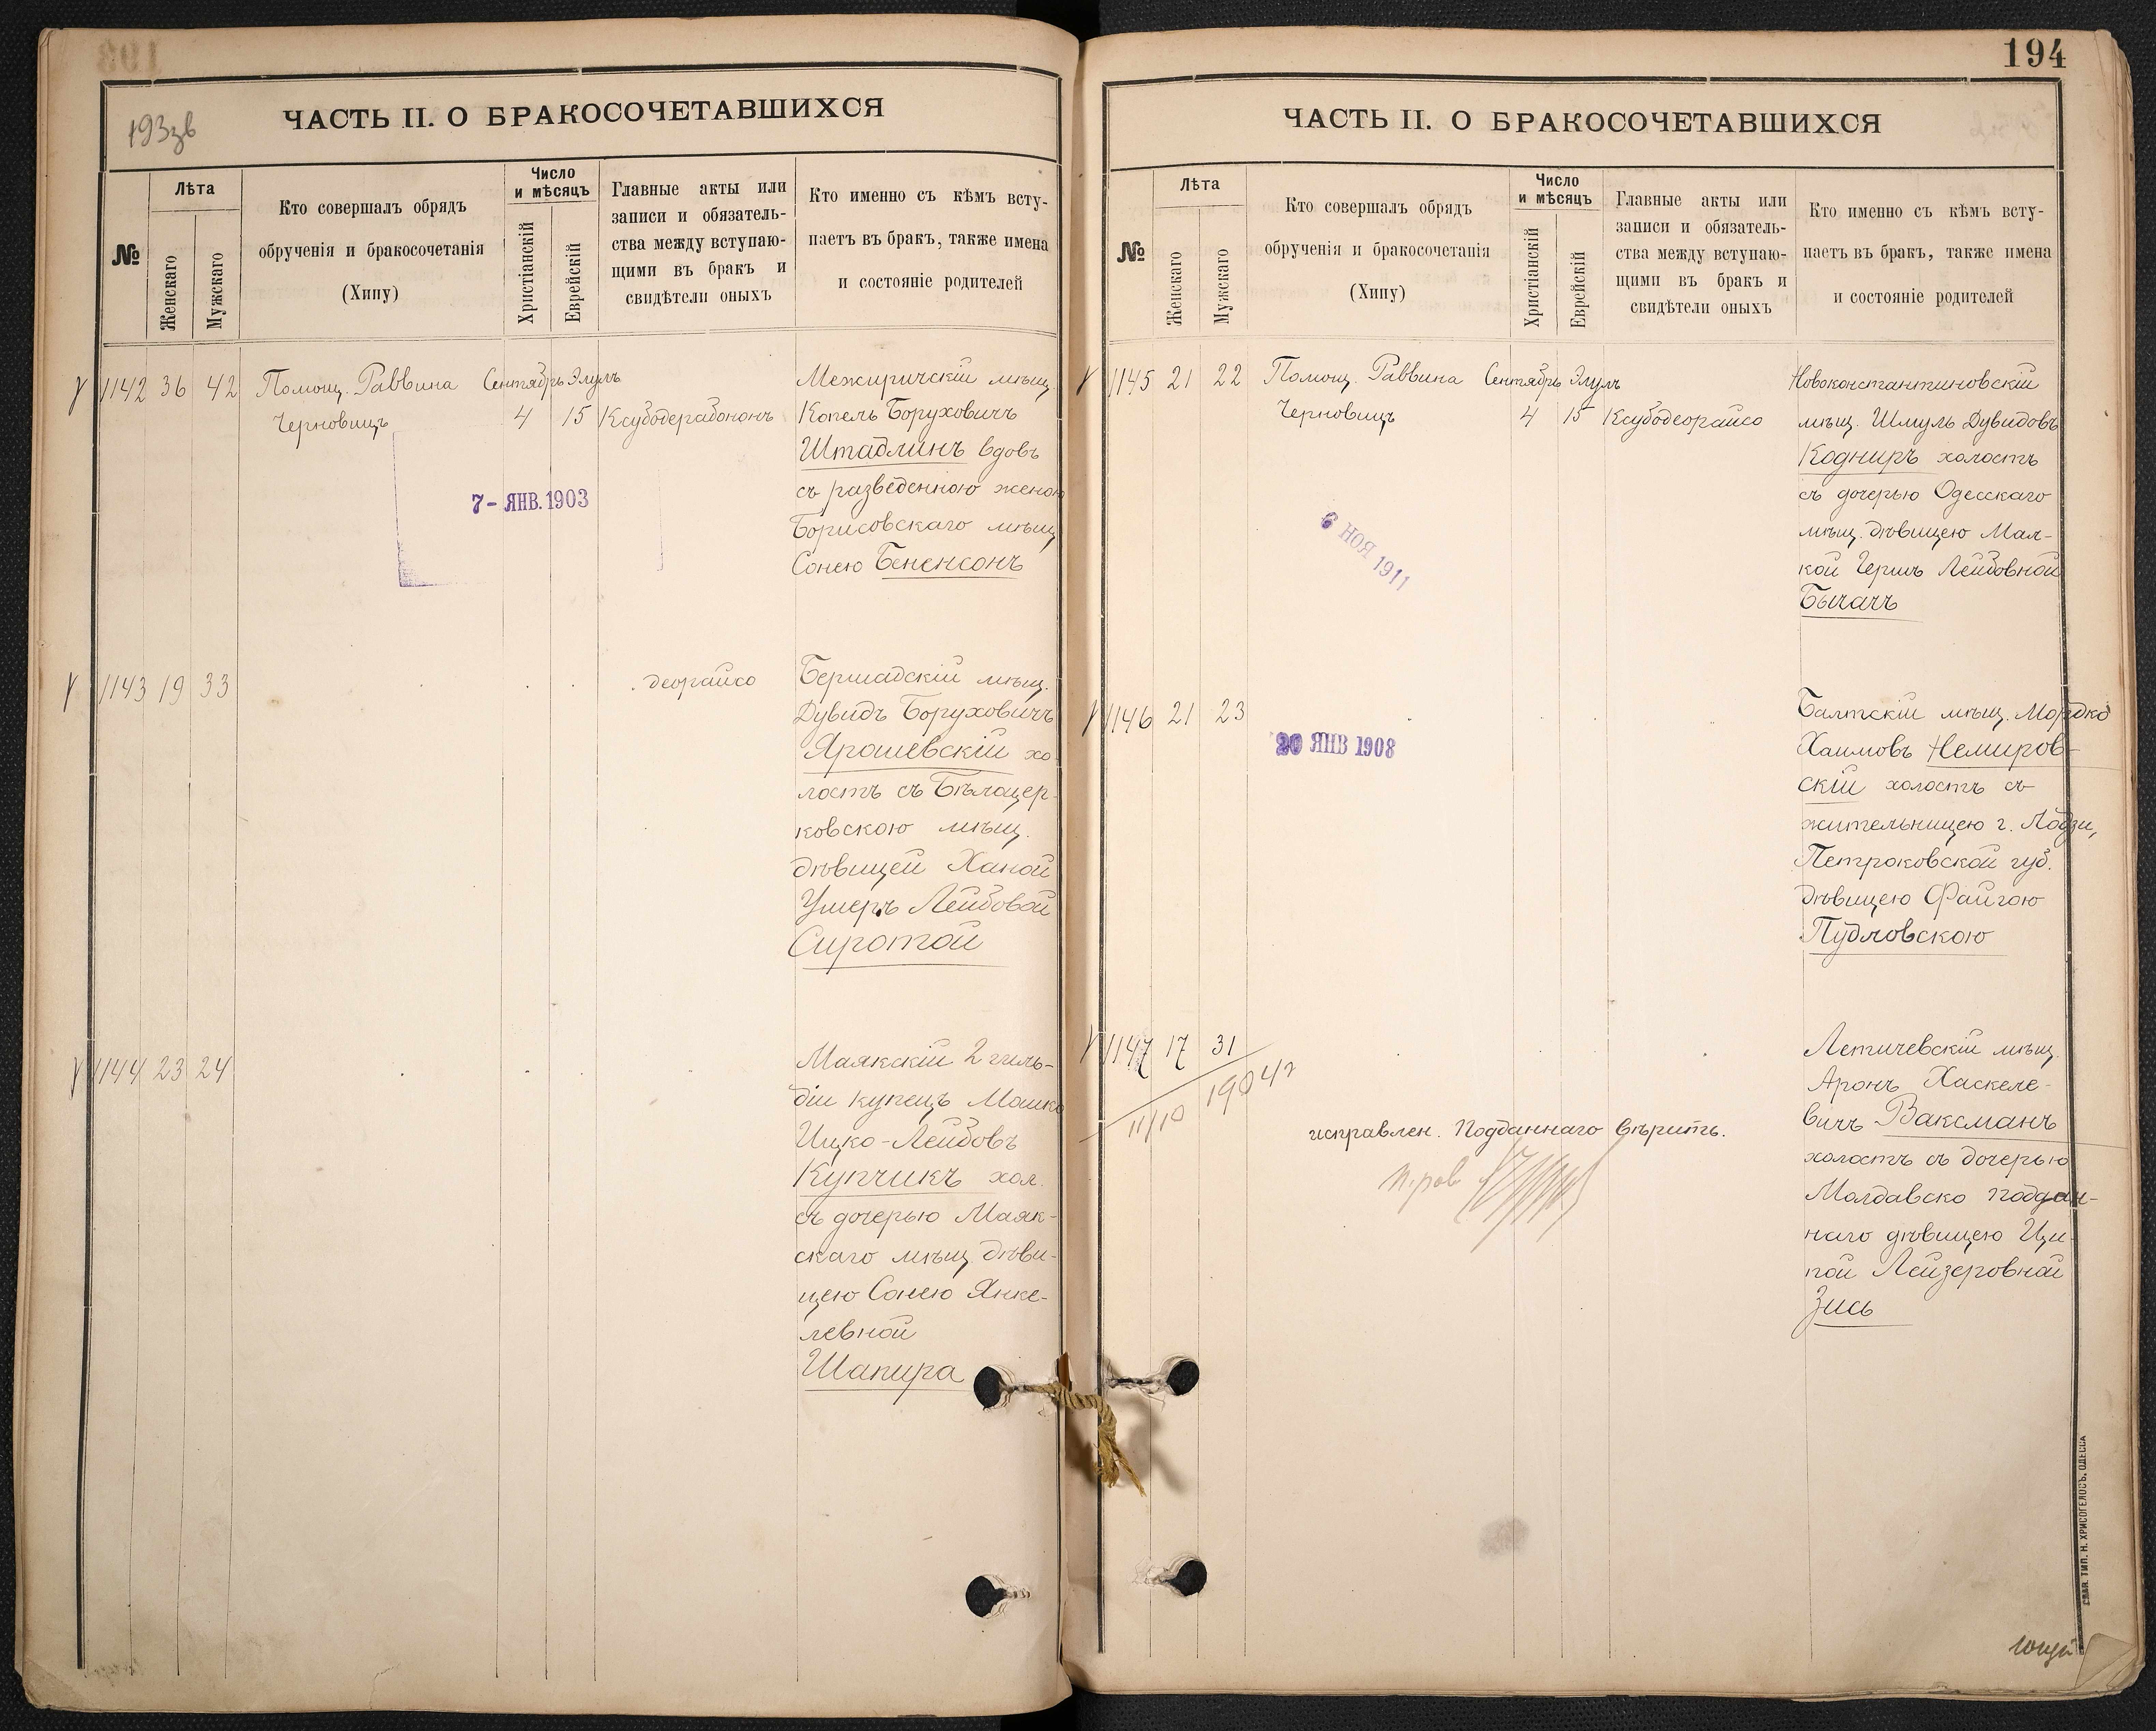 193зв
ЧАСТЬ II. О БРАКОСОЧЕТАВШИХСЯ
№
Лѣта
Женскаго
Мужскаго
Кто совершалъ обрядъ
обрученія и бракосочетанія
(Хипу)
Число
и мѣсяцъ
Христіанскій
Еврейскій
Главные акты или
записи и обязатель-
ства между вступаю-
щими въ бракъ и
свидѣтели оныхъ
Кто именно съ кѣмъ всту-
паетъ въ бракъ, также имена
и состояніе родителей
1142 36 42 Помощ. Раввина Сентябрь Элулъ
Черновицъ 4 15 Ксубодерабононъ
Межиричскій мѣщ.
Копель Боруховичъ
Штадлинъ вдовъ
съ разведенною женою
Борисовскаго мѣщ.
Сонею Бененсонъ
7- ЯНВ. 1903
1143 19 33 деорайсо
Бершадскій мѣщ.
Дувидъ Боруховичъ
Ярошевскій хо-
лостъ съ Бѣлоцер-
ковскою мѣщ.
дѣвицей Ханой
Ушеръ Лейбовой
Сиротой
1144 23 24
Маякскій 2 гиль-
діи купецъ Мошко
Ицко-Лейбовъ
Купчикъ хол.
съ дочерью Маяк-
скаго мѣщ. дѣви-
цею Сонею Янке-
левной
Шапира
194
ЧАСТЬ II. О БРАКОСОЧЕТАВШИХСЯ
№
Лѣта
Женскаго
Мужскаго
Кто совершалъ обрядъ
обрученія и бракосочетанія
(Хипу)
Число
и мѣсяцъ
Христіанскій
Еврейскій
Главные акты или
записи и обязатель-
ства между вступаю-
щими въ бракъ и
свидѣтели оныхъ
Кто именно съ кѣмъ всту-
паетъ въ бракъ, также имена
и состояніе родителей
1145 21 22 Помощ. Раввина Сентябрь Элулъ
Черновицъ 4 15 Ксубодеорайсо
Новоконстантиновскій
мѣщ. Шмуль Дувидовъ
Кодниръ холостъ
съ дочерью Одесскаго
мѣщ. дѣвицею Мал-
кой Гершъ Лейбовной
Бычачъ
6 НОЯ 1911
1146 21 23
20 ЯНВ 1908
Балтскій мѣщ. Мордко
Хаимовъ Немиров-
скій холостъ съ
жительницею г. Лодзи,
Петроковской губ.
дѣвицею Файгою
Пудловскою
1147 17 31
11/10 1904 г
исправлен. Подданнаго вѣрить.
Летичевскій мѣщ.
Аронъ Хаскеле-
вичъ Ваксманъ
холостъ съ дочерью
Молдавско поддан-
наго дѣвицею Ци-
пой Лейзеровной
Зись
СЛАВ. ТИП. Н. ХРИСОГЕЛОСЪ, ОДЕССА